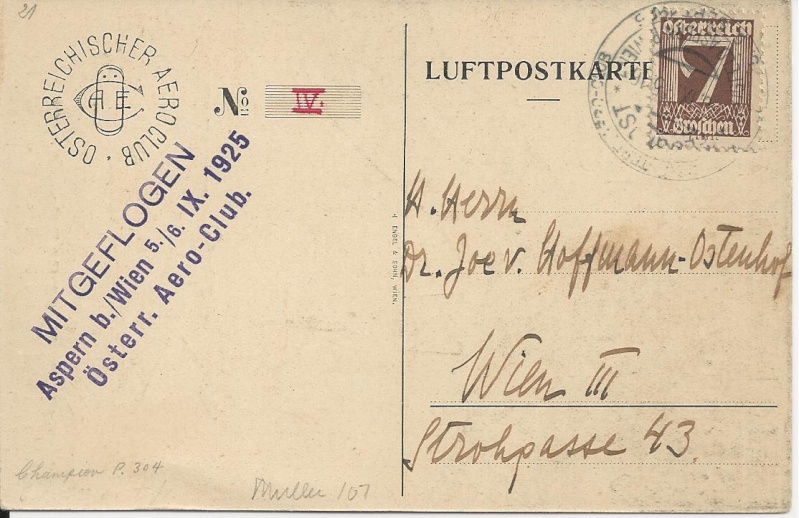 21
ÖSTERREICHISCHER AEROCLUB
No IV.
MITGEFLOGEN
Aspern b./Wien 5./6. IX. 1925
Österr. Aero-Club.
LUFTPOSTKARTE
Österreich
7
Groschen
H. ENGEL & SOHN, WIEN.
H. Herrn
Dr. Joe v. Hoffmann-Ostenhof
Wien III
Strohgasse 43.
Champion P. 304
Muller 107